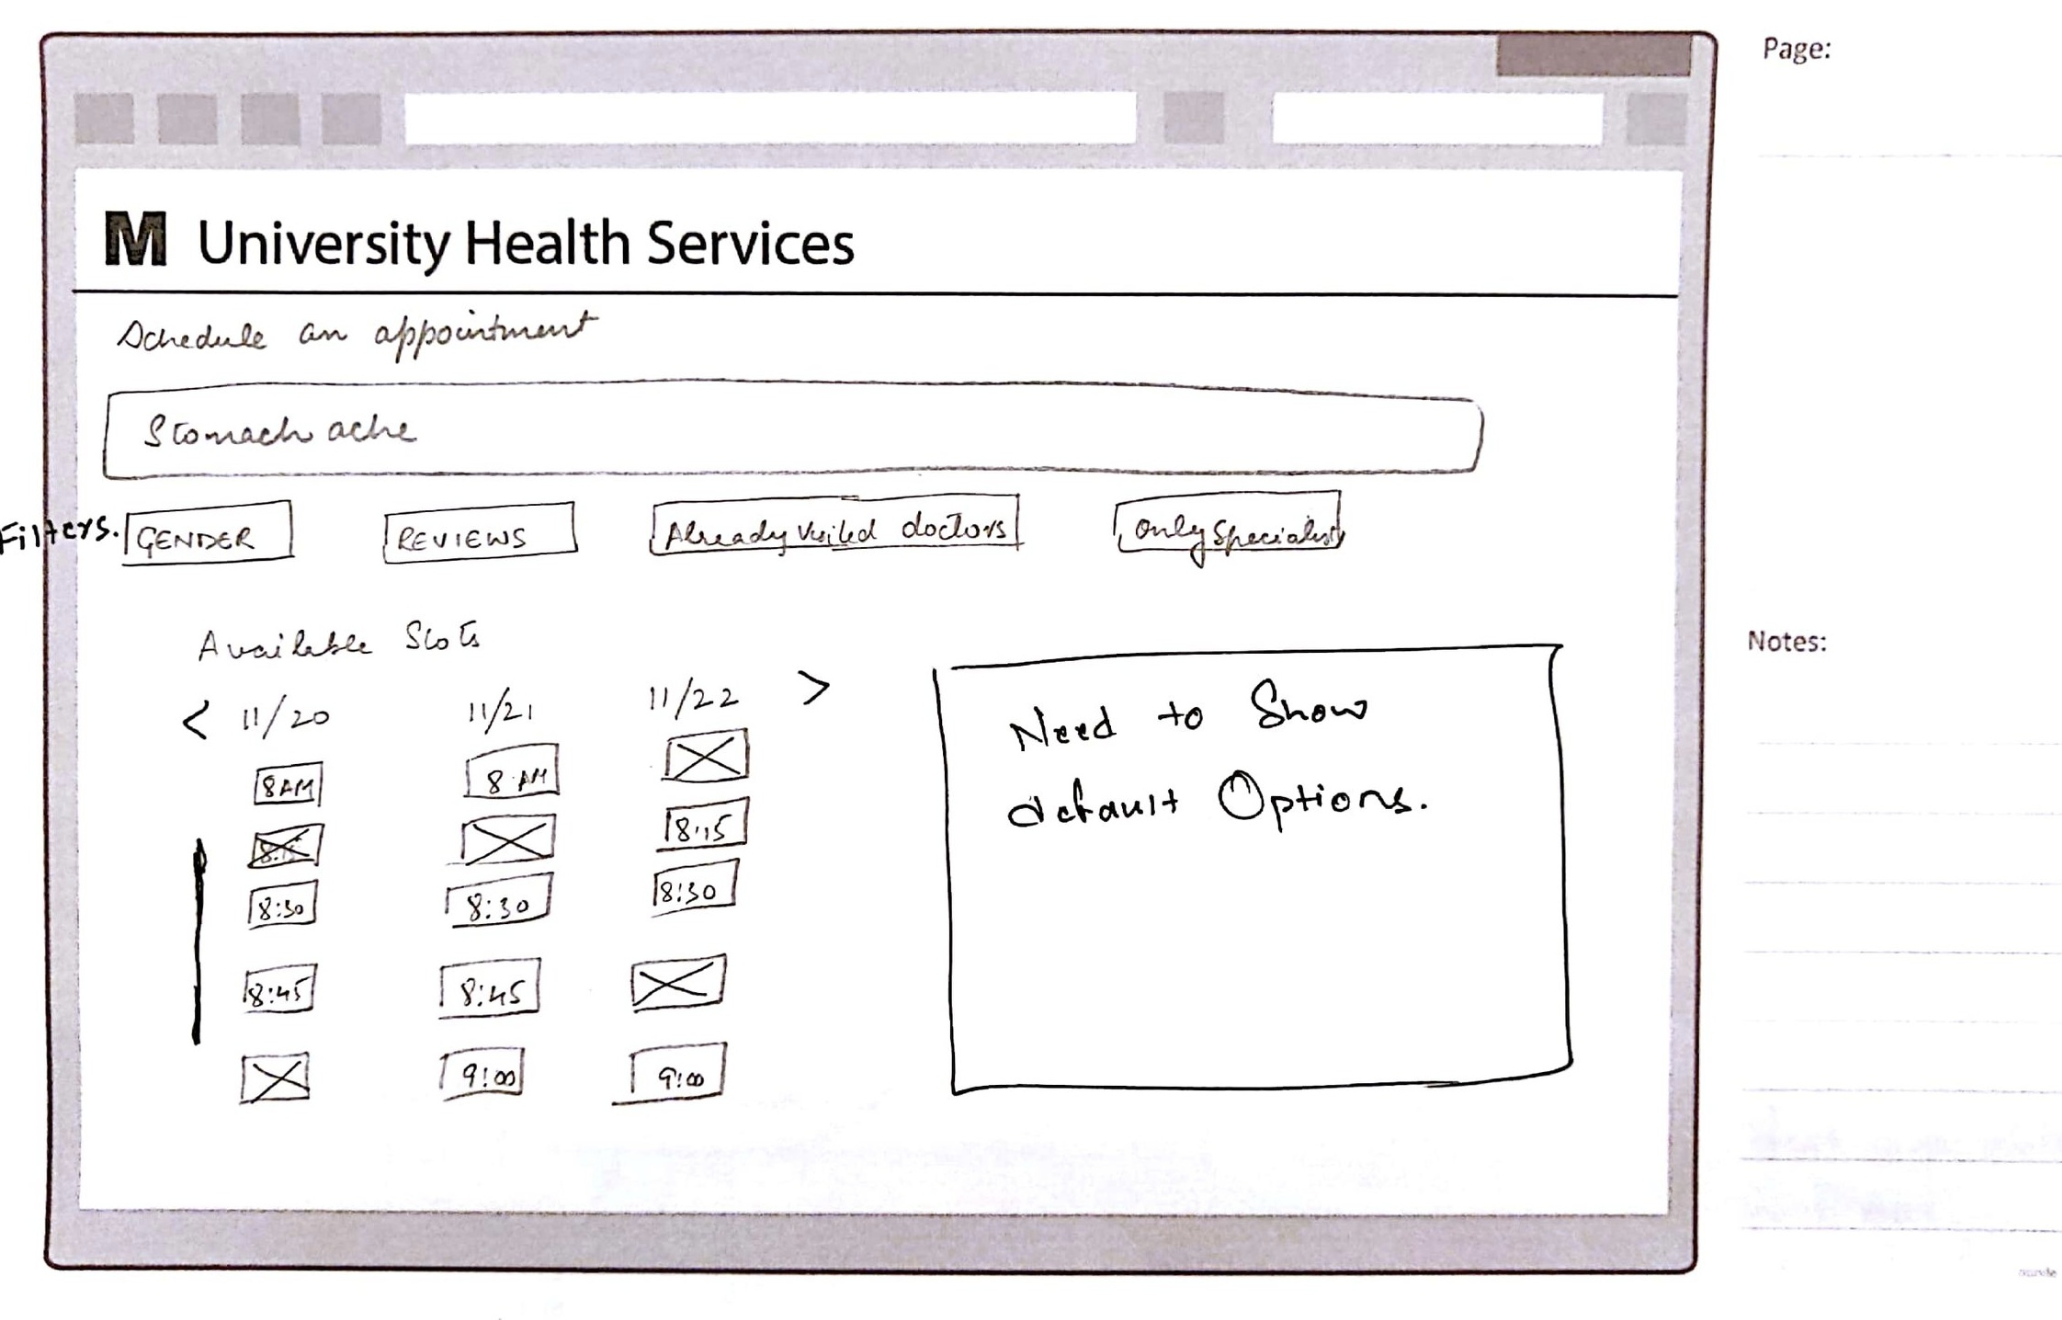 Page:
M University Health Services
Schedule an appointment
Stomach ache
Filters. GENDER REVIEWS Already visited doctors only specialists
Available Slots
Notes:
< 11/20 11/21 11/22 >
8 AM 8 AM
8:15 8:15
8:30 8:30 8:30
8:45 8:45
9:00 9:00
Need to Show
default Options.